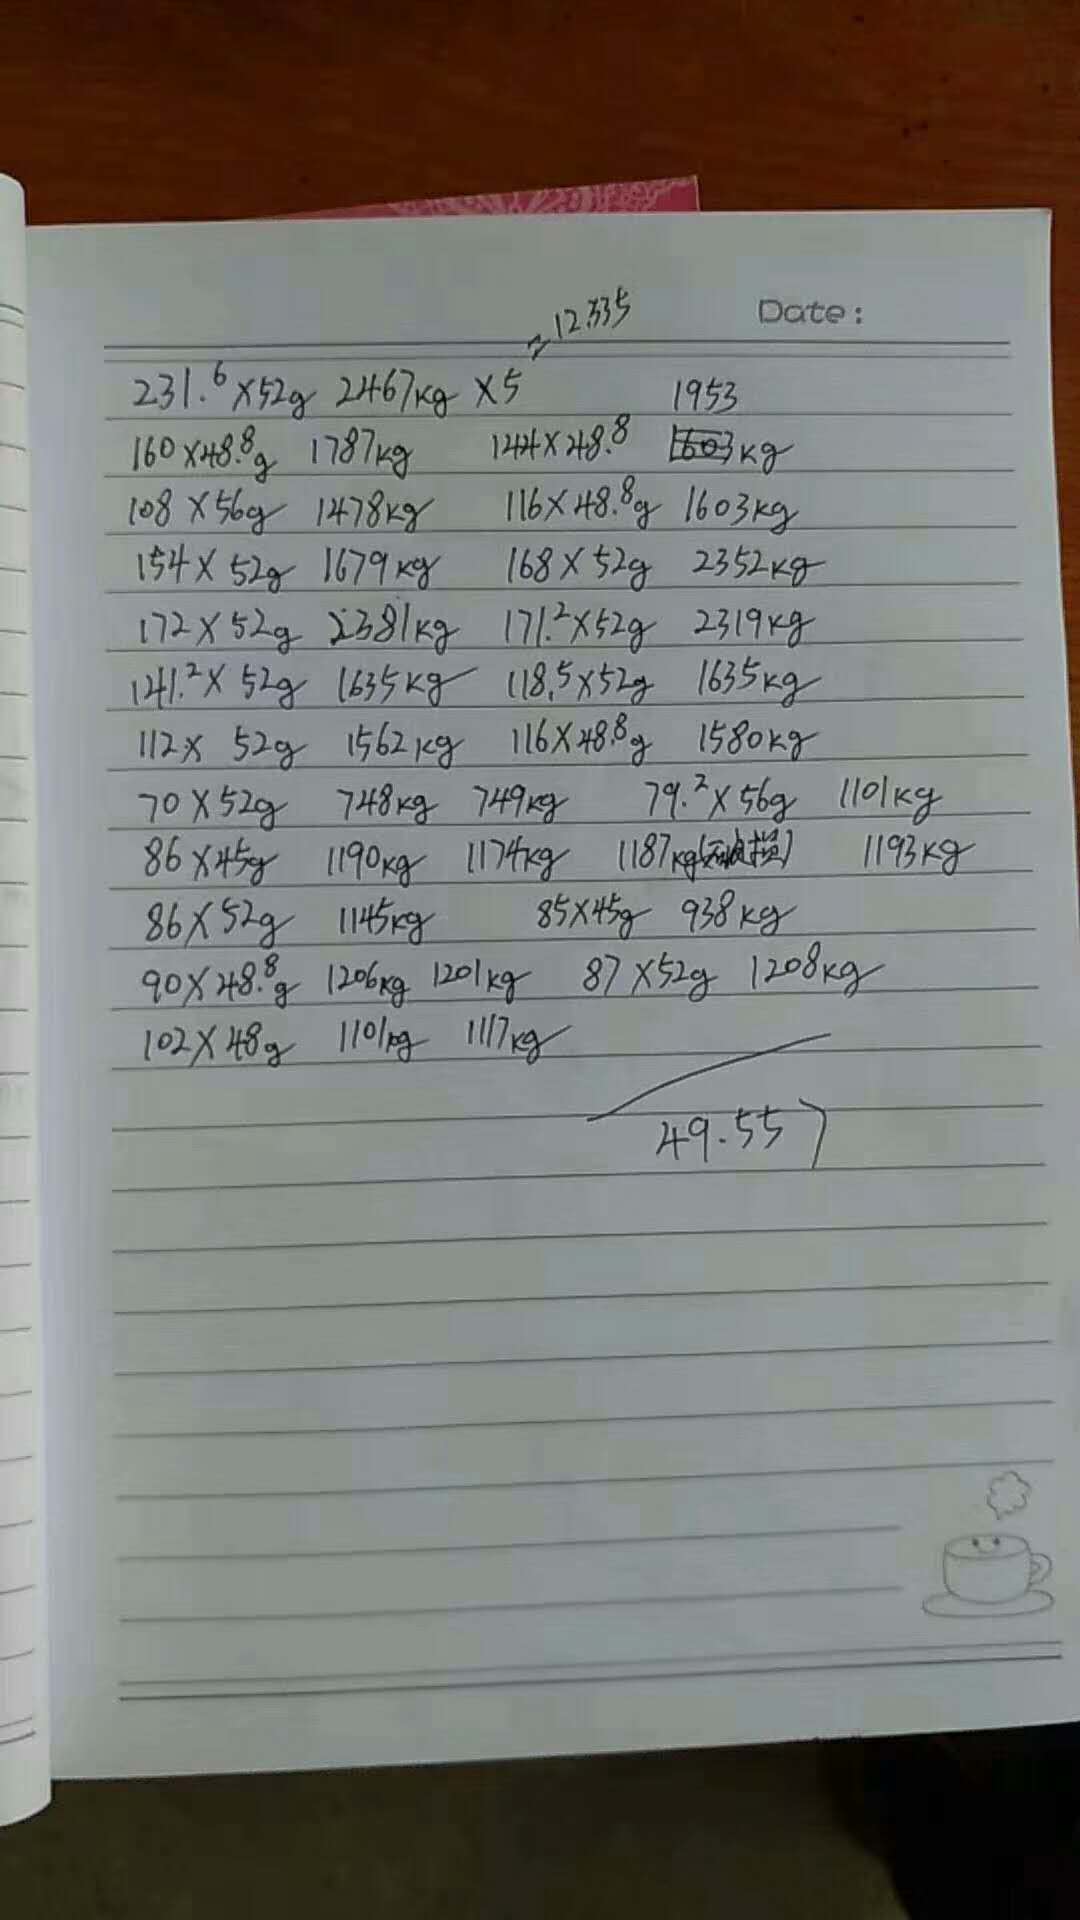 =12.335
Date:
231.6×52g 2467kg ×5 1953
160×48.8g 1787kg 144×48.8 1603kg
108×56g 1478kg 116×48.8g 1603kg
154×52g 1679kg 168×52g 2352kg
172×52g 2381kg 171.2×52g 2319kg
141.2×52g 1635kg 118.5×52g 1635kg
112×52g 1562kg 116×48.8g 1580kg
70×52g 748kg 749kg 79.2×56g 1101kg
86×45g 1190kg 1174kg 1187kg 1193kg
86×52g 1145kg 85×45g 938kg
90×48.8g 1206kg 1201kg 87×52g 1208kg
102×48g 1101kg 1117kg
49.557